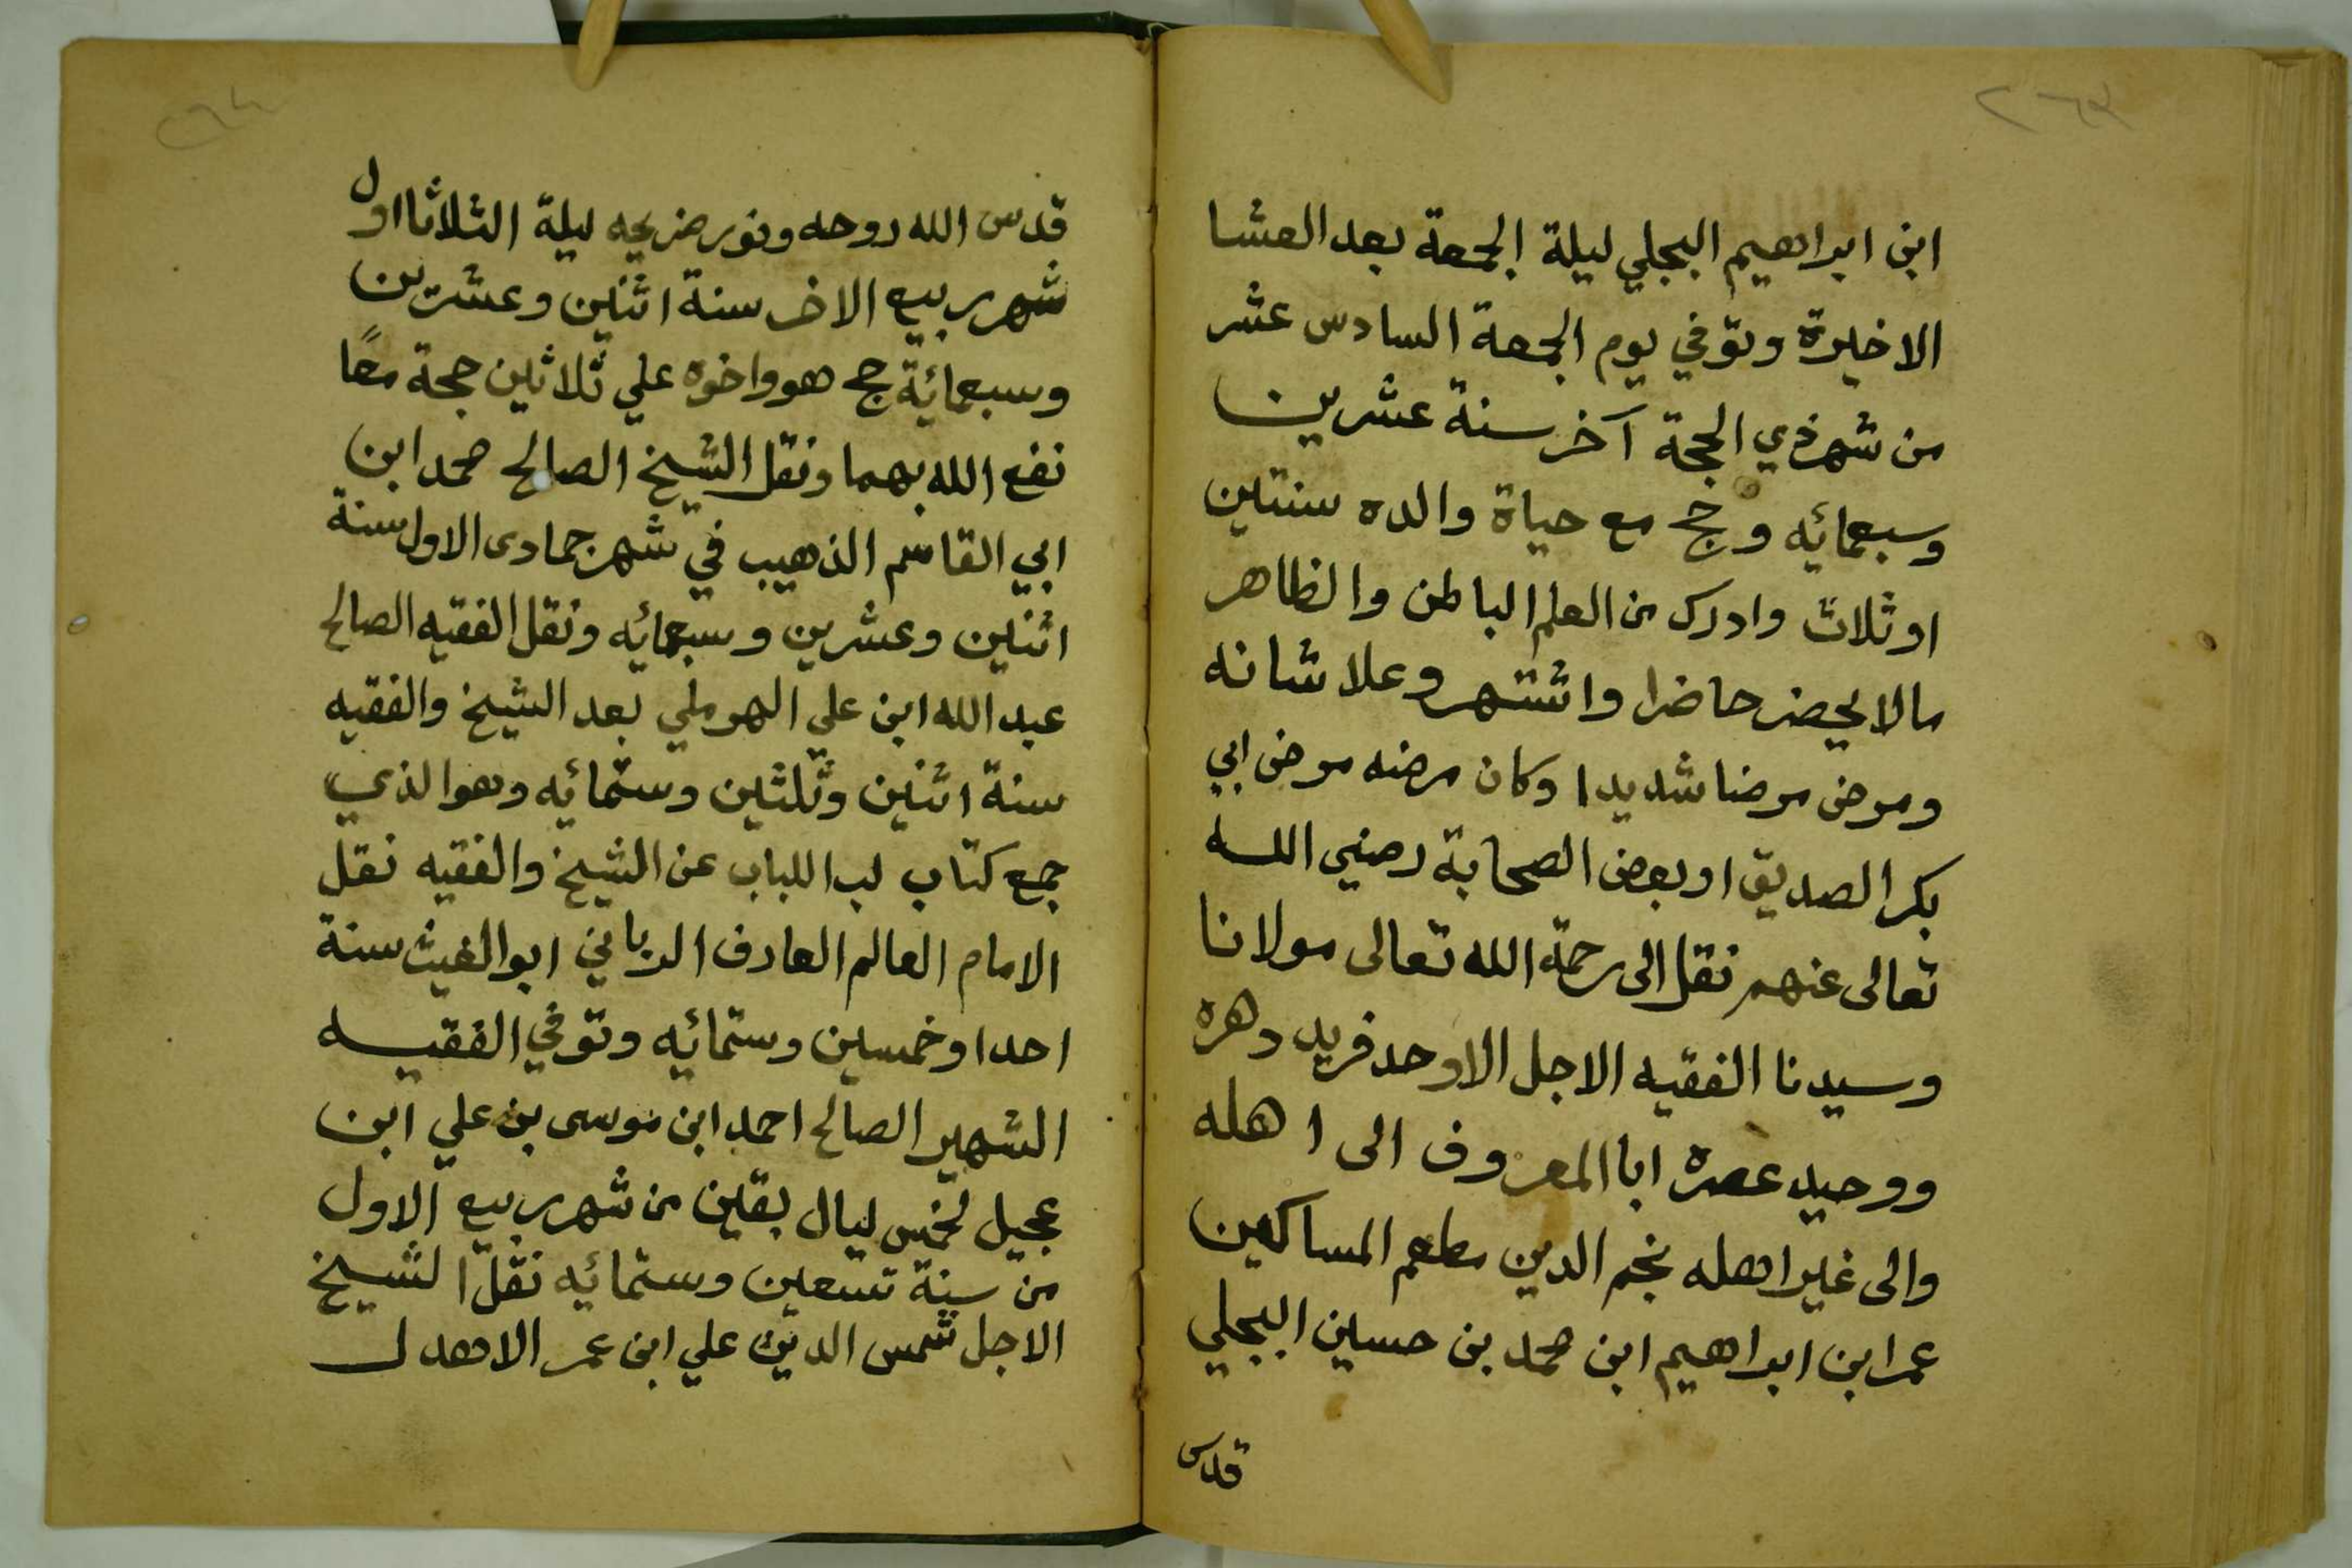 ٢٦٣
ابن ابراهيم البجلي ليلة الجمعة بعد العشا
الاخيرة وتوفي يوم الجمعة السادس عشر
من شهر ذي الحجة آخر سنة عشرين
وسبعمائه وحج مع حياة والده سنتين
او ثلاث وادرك من العلم الباطن والظاهر
مالا يحضر حاضرا واشتهر وعلا شانه
ومرض مرضا شديدا وكان مرضه مرض ابي
بكر الصديق او بعض الصحابة رضي الله
تعالى عنهم نقل الى رحمة الله تعالى مولانا
وسيدنا الفقيه الاجل الاوحد فريد دهره
ووحيد عصره ابا المعروف الى اهله
والى غير اهله نجم الدين مطعم المساكين
عمر ابن ابراهيم ابن محمد بن حسين البجلي
قدس
٢٦٤
قدس الله روحه ونور ضريحه ليلة الثلاثا اول
شهر ربيع الاخر سنة اثنين وعشرين
وسبعمائة حج هو واخوه علي ثلاثين حجة معًا
نفع الله بهما ونقل الشيخ الصالح محمد ابن
ابي القاسم الذهيب في شهر جمادى الاول سنة
اثنين وعشرين وسبعمائه ونقل الفقيه الصالح
عبد الله ابن على الهرملي بعد الشيخ والفقيه
سنة اثنين وثلثين وستمائه وهو الذي
جمع كتاب لب اللباب عن الشيخ والفقيه نقل
الامام العالم العارف الرباني ابو الغيث سنة
احدا وخمسين وستمائه وتوفي الفقيه
الشهير الصالح احمد ابن موسى بن علي ابن
عجيل لخمس ليال بقين من شهر ربيع الاول
من سنة تسعين وستمائه نقل الشيخ
الاجل شمس الدين علي ابن عمر الاهدل